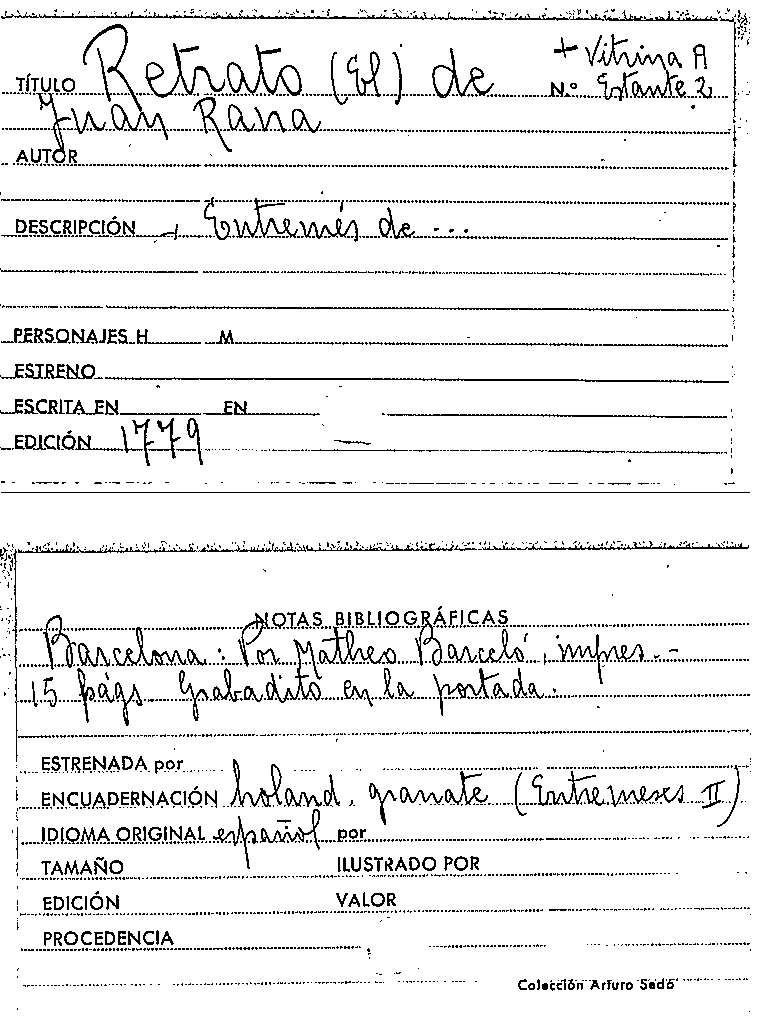 TÍTULO Retrato (El) de + Vitrina A
N.º Estante 2
Juan Rana
AUTOR
DESCRIPCIÓN + Entremés de ...
PERSONAJES H M
ESTRENO
ESCRITA EN EN
EDICIÓN 1779 —
NOTAS BIBLIOGRÁFICAS
Barcelona : Por Matheo Barceló, impres.-
15 págs. Grabadito en la portada.
ESTRENADA por
ENCUADERNACIÓN holand. granate (Entremeses II)
IDIOMA ORIGINAL español por
TAMAÑO ILUSTRADO POR
EDICIÓN VALOR
PROCEDENCIA
Colección Arturo Sedó